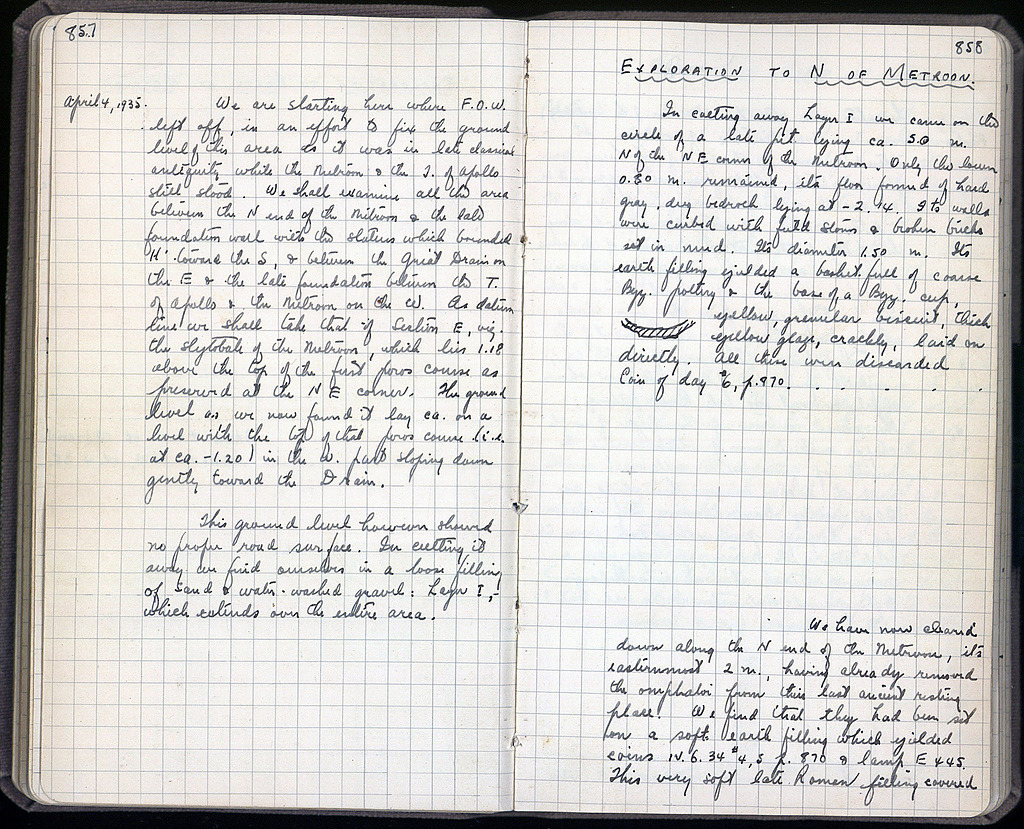 857
April 4, 1935.
We are starting here where F.O.W.
left off, in an effort to fix the ground
level of this area as it was in late classical
antiquity while the Metroon & the T. of Apollo
still stood. We shall examine all the area
between the N end of the Metroon & the late
foundation wall with the statues which bounded
it toward the S, & between the Great Drain on
the E & the late foundation between the T.
of Apollo & the Metroon on the W. As datum
line we shall take that of Section E, viz.
the stylobate of the Metroon, which lies 1.18
above the top of the first poros course as
preserved at the NE corner. The ground
level as we now found it lay ca. on a
level with the top of that poros course (i.e.
at ca. -1.20) in the W. part sloping down
gently toward the Drain.
This ground level however showed
no proper road surface. In cutting it
away we find ourselves in a loose filling
of sand & water-washed gravel: Layer I,-
which extends over the entire area.
858
EXPLORATION TO N OF METROON.
In cutting away Layer I we came on the
circle of a late pit lying ca. 5.0 m.
N of the NE corner of the Metroon. Only the lower
0.80 m. remained, its floor formed of hard
gray, dry bedrock lying at -2.14. Its walls
were curbed with field stones & broken bricks
set in mud. Its diameter 1.50 m. Its
earth filling yielded a basket full of coarse
Byz. pottery & the base of a Byz. cup,
yellow, granular biscuit, thick
yellow glaze, crackly, laid on
directly. All these were discarded
Coin of day #6, p. 870. . . . . . .
We have now cleared
down along the N end of the Metroon, its
easternmost 2 m., having already removed
the omphaloi from this last ancient resting
place. We find that they had been set
on a soft earth filling which yielded
coins IV.6.34 #4,5 p. 870 & lamp E 445.
This very soft late Roman filling covered